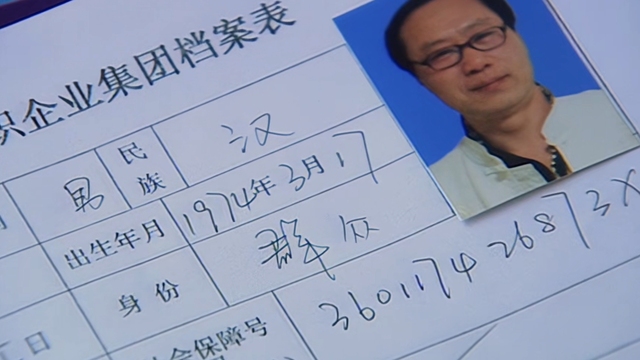 织企业集团档案表
男 民族 汉
出生年月 1974年3月17
身份 群众
会保障号 36011742687 3X